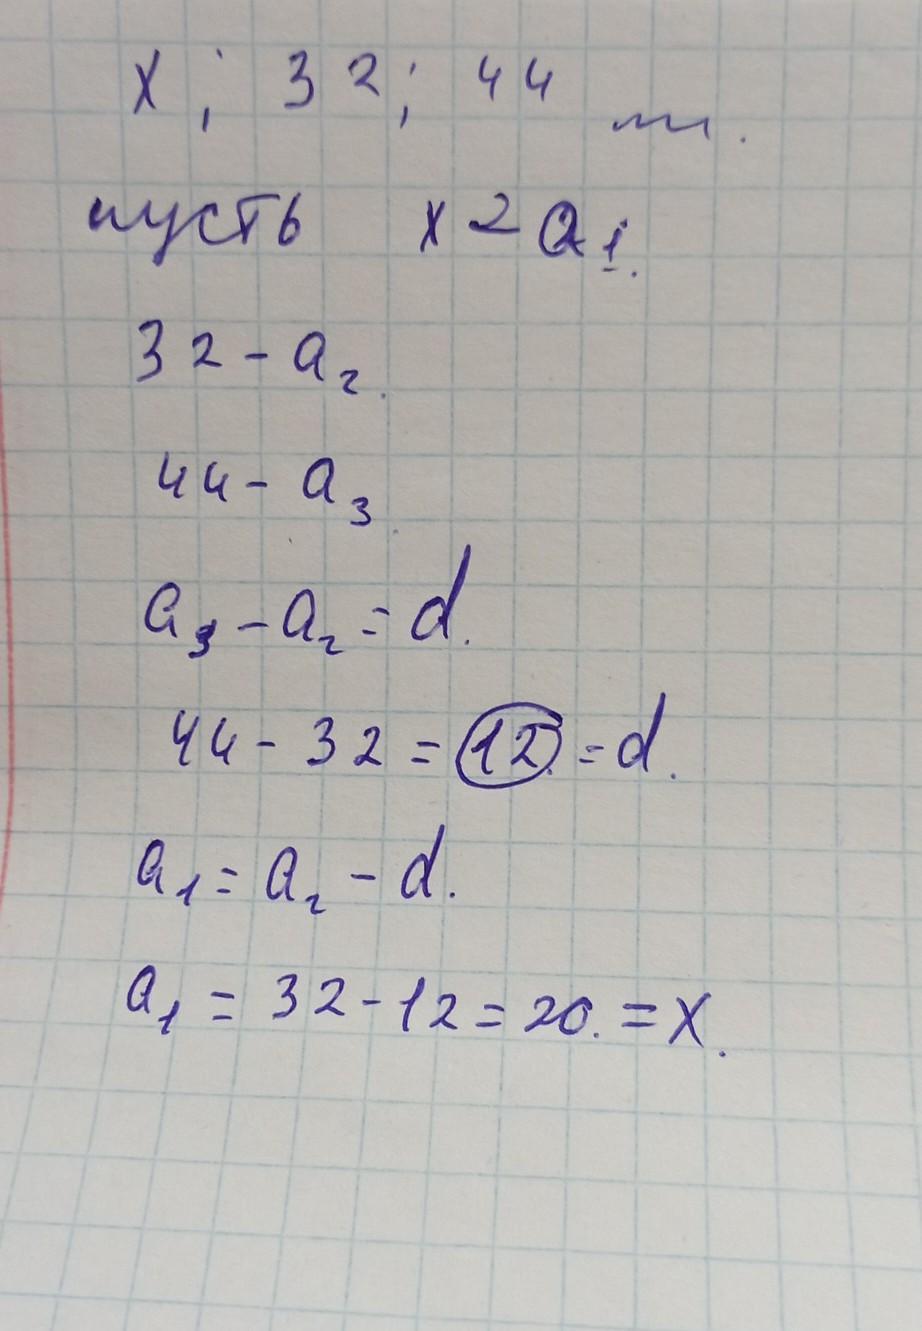 x ; 32; 44
пусть x = a₁.
32 - a₂.
44 - a₃.
a₃ - a₂ = d.
44 - 32 = 12. = d.
a₁ = a₂ - d.
a₁ = 32 - 12 = 20. = x.